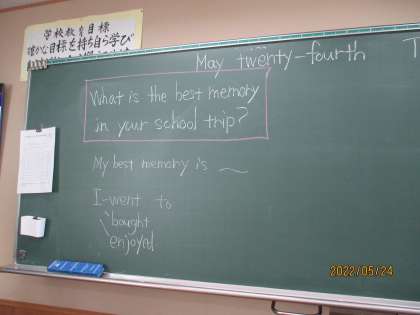 学校教育目標
確かな目標を持ち自ら学び
May twenty-fourth
T
What is the best memory
in your school trip?
My best memory is ～
I went to
bought
enjoyed
2022/05/24